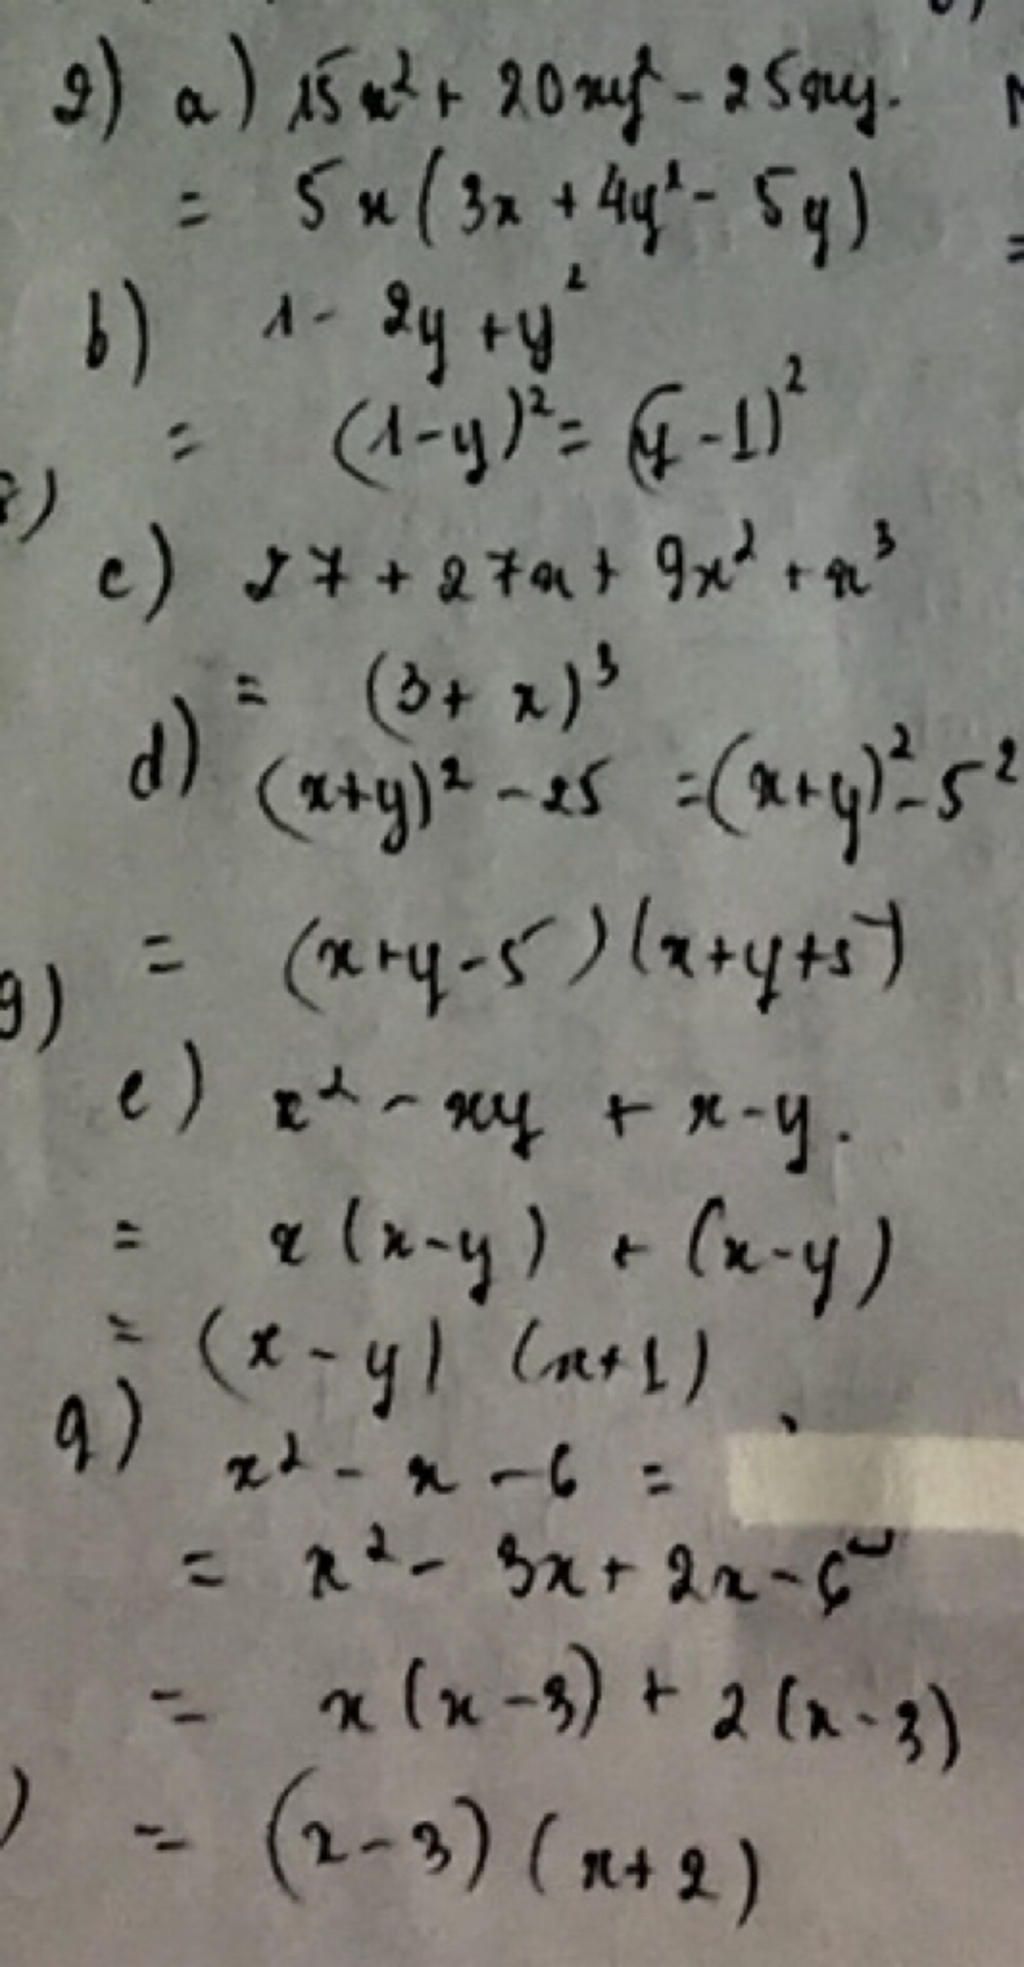 2) a) 15x² + 20xy² - 25xy.
= 5x(3x + 4y² - 5y)
b) 1 - 2y + y²
= (1-y)² = (y-1)²
c) 27 + 27x + 9x² + x³
= (3 + x)³
d) (x+y)² - 25 = (x+y)² - 5²
= (x+y-5)(x+y+5)
9)
e) x² - xy + x - y.
= x(x-y) + (x-y)
= (x-y) (x+1)
g) x² - x - 6 =
= x² - 3x + 2x - 6
= x(x-3) + 2(x-3)
= (x-3)(x+2)